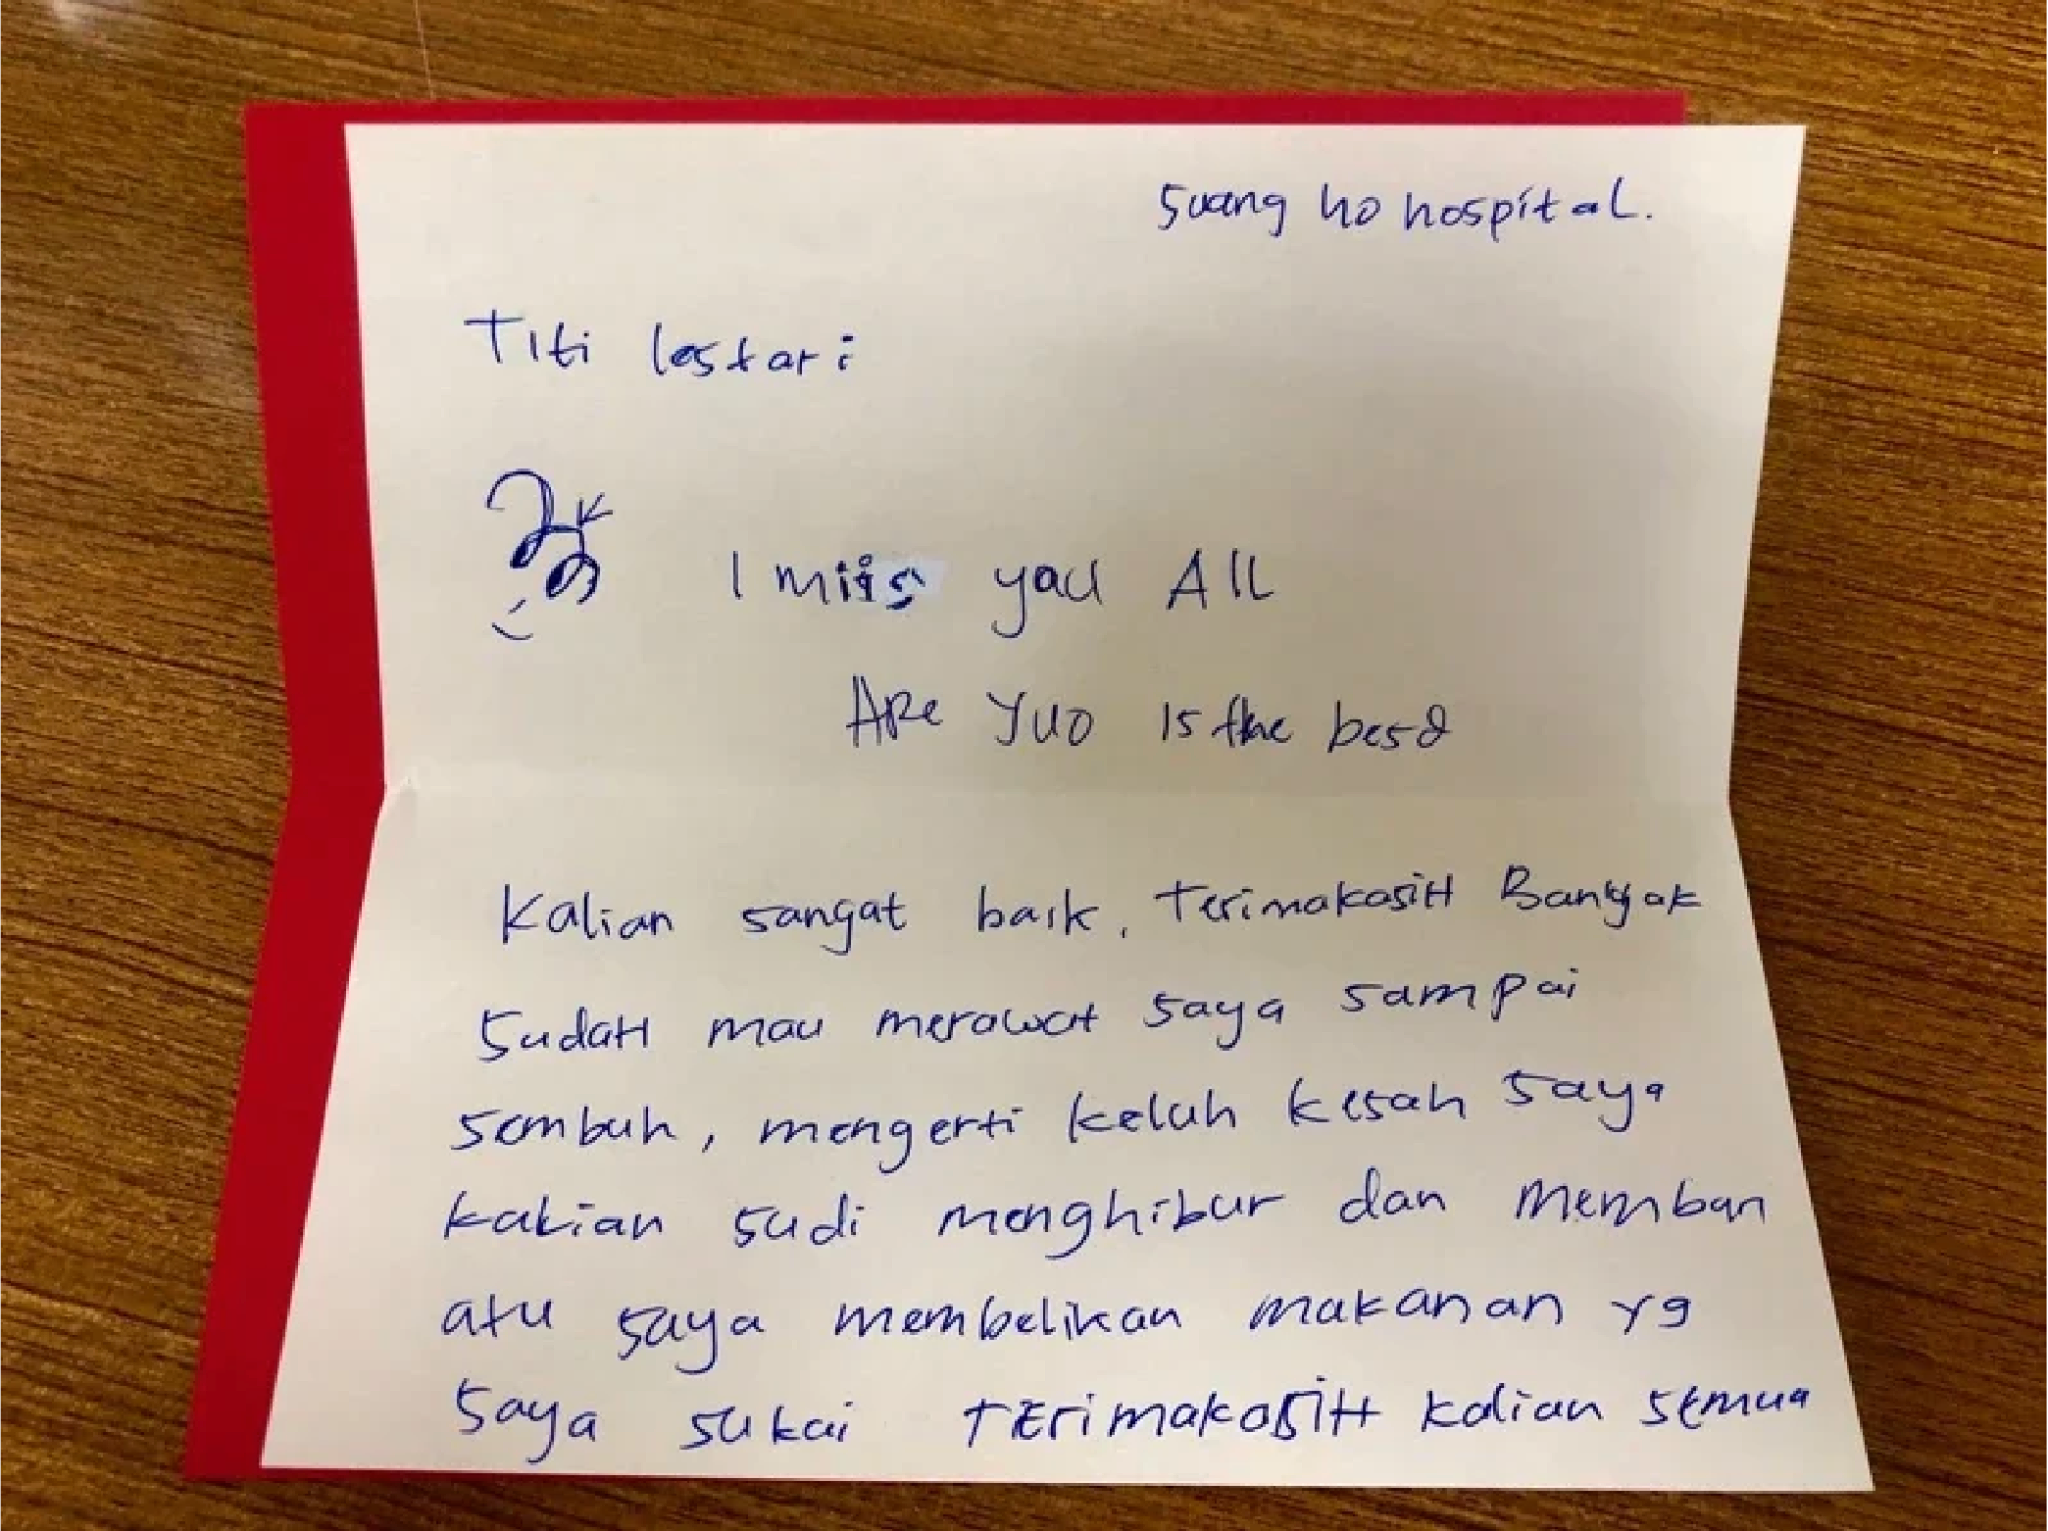 Suang ho hospital.
Titi lestari
I miis you All
Are yuo is the besd
Kalian sangat baik, TerimakasiH Banyak
SudaH mau merawat saya sampai
sembuh, mengerti keluh kesah saya
kalian sudi menghibur dan memban
atu saya membelikan makanan yg
saya sukai TErimakasiH kalian semua